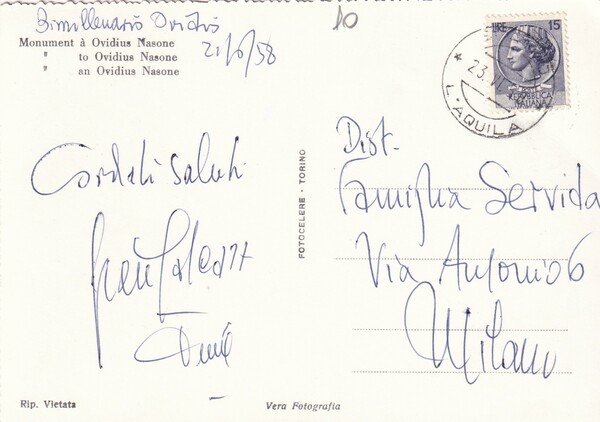 Bimillenario Ovidio
10
21/6/58
Monument à Ovidius Nasone
" to Ovidius Nasone
" an Ovidius Nasone
LIRE 15
REPVBBLICA
ITALIANA
23.
L'AQUILA
Cordiali saluti
Dist.
Famiglia Servida
Via Antonio 6
Milano
FOTOCELERE - TORINO
Rip. Vietata
Vera Fotografia